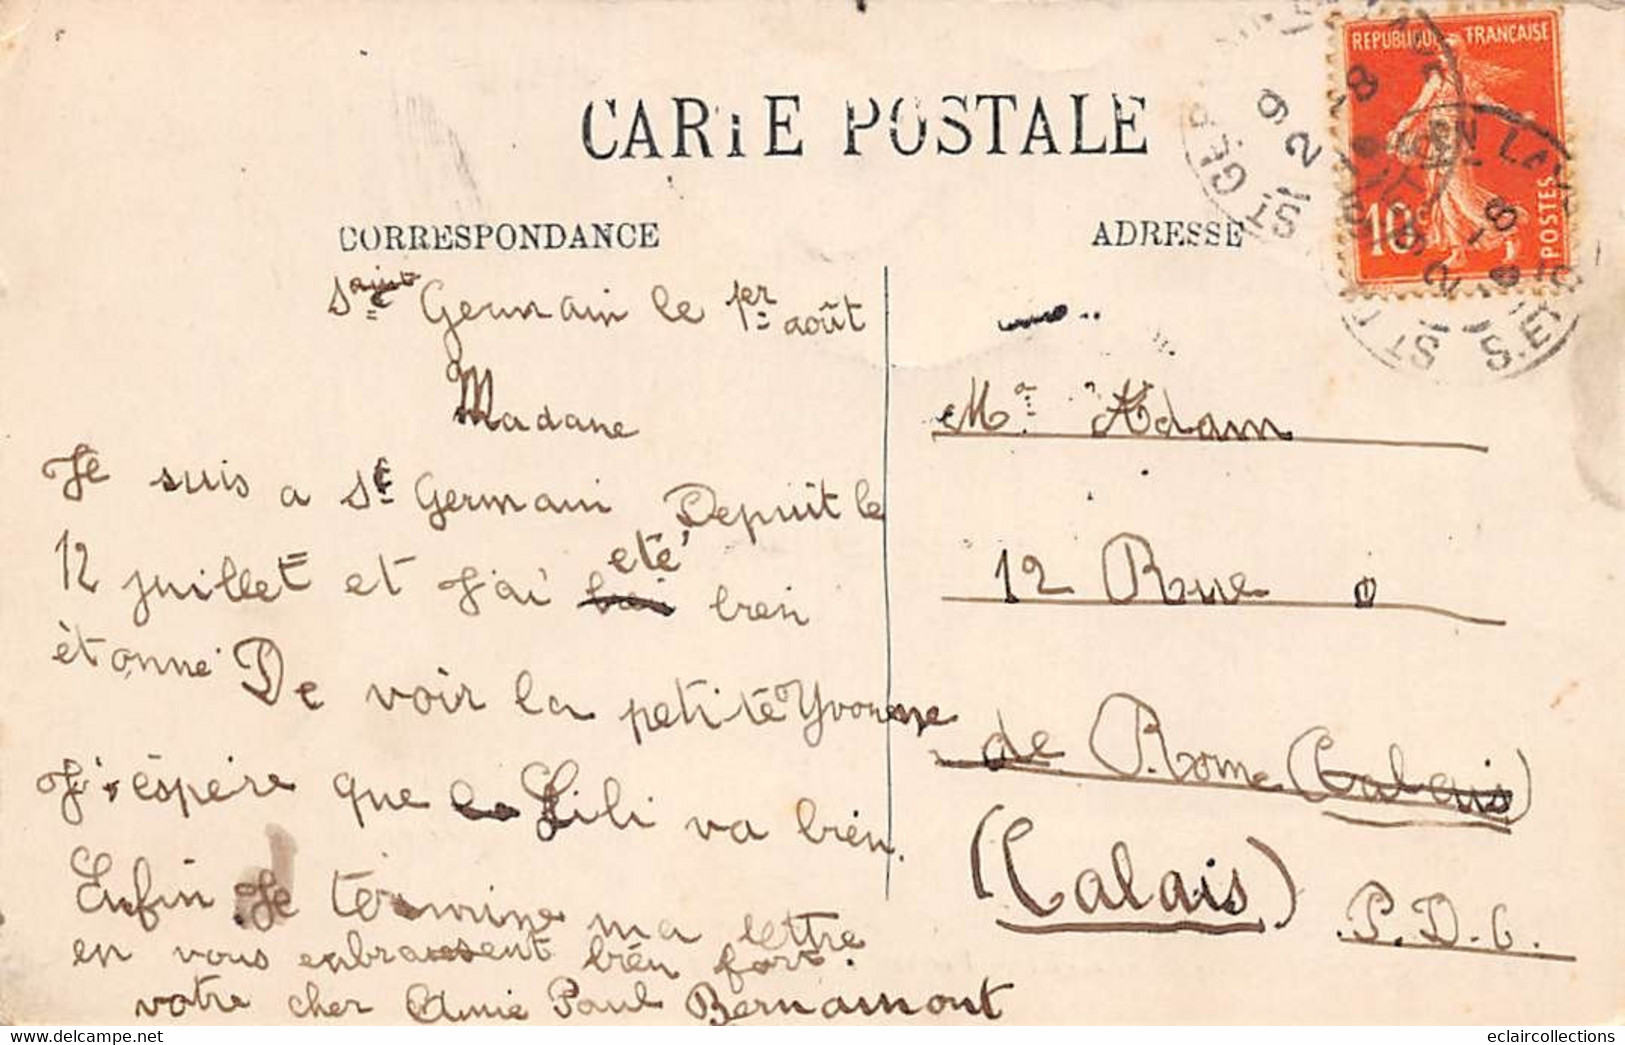 CARTE POSTALE
CORRESPONDANCE
ADRESSE
REPUBLIQUE FRANÇAISE
10c
POSTES
Saint Germain le 1er août
Madane
Je suis a St Germain Depuit le
12 juillet et j'ai eté bien
étonné De voir la petite Yvonne
J'éspére que Lili va bien.
Enfin Je termine ma lettre
en vous enbrassent bién fort.
votre cher Amie Paul Bernamont
Me Adam
12 Rue
de Rome (Calais)
(Calais)
P.D.C.
www.delcampe.net
eclaircollections